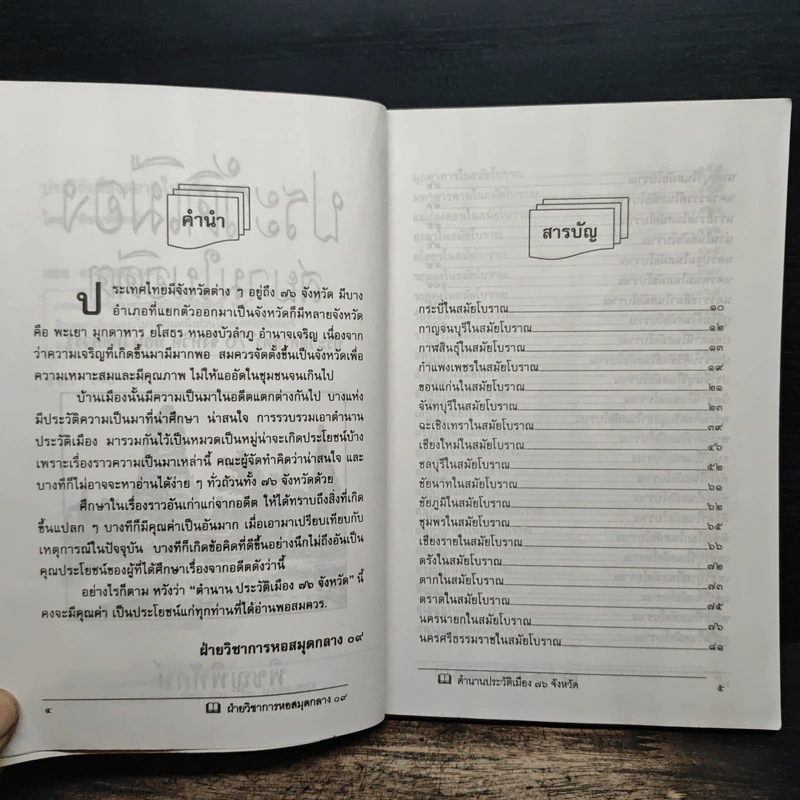 คำนำ
ประเทศไทยมีจังหวัดต่าง ๆ อยู่ถึง ๗๖ จังหวัด มีบาง
อำเภอที่แยกตัวออกมาเป็นจังหวัดก็มีหลายจังหวัด
คือ พะเยา มุกดาหาร ยโสธร หนองบัวลำภู อำนาจเจริญ เนื่องจาก
ว่าความเจริญที่เกิดขึ้นมามีมากพอ สมควรจัดตั้งขึ้นเป็นจังหวัดเพื่อ
ความเหมาะสมและมีคุณภาพ ไม่ให้แออัดในชุมชนจนเกินไป
บ้านเมืองนั้นมีความเป็นมาในอดีตแตกต่างกันไป บางแห่ง
มีประวัติความเป็นมาที่น่าศึกษา น่าสนใจ การรวบรวมเอาตำนาน
ประวัติเมือง มารวมกันไว้เป็นหมวดเป็นหมู่น่าจะเกิดประโยชน์บ้าง
เพราะเรื่องราวความเป็นมาเหล่านี้ คณะผู้จัดทำคิดว่าน่าสนใจ และ
บางทีก็ไม่อาจจะหาอ่านได้ง่าย ๆ ทั่วถ้วนทั้ง ๗๖ จังหวัดด้วย
ศึกษาในเรื่องราวอันเก่าแก่จากอดีต ให้ได้ทราบถึงสิ่งที่เกิด
ขึ้นแปลก ๆ บางทีก็มีคุณค่าเป็นอันมาก เมื่อเอามาเปรียบเทียบกับ
เหตุการณ์ในปัจจุบัน บางทีก็เกิดข้อคิดที่ดีขึ้นอย่างนึกไม่ถึงอันเป็น
คุณประโยชน์ของผู้ที่ได้ศึกษาเรื่องจากอดีตดังว่านี้
อย่างไรก็ตาม หวังว่า "ตำนาน ประวัติเมือง ๗๖ จังหวัด" นี้
คงจะมีคุณค่า เป็นประโยชน์แก่ทุกท่านที่ได้อ่านพอสมควร.
ฝ่ายวิชาการหอสมุดกลาง ๐๙
๔ ฝ่ายวิชาการหอสมุดกลาง ๐๙
สารบัญ
กระบี่ในสมัยโบราณ ๑๐
กาญจนบุรีในสมัยโบราณ ๑๒
กาฬสินธุ์ในสมัยโบราณ ๑๓
กำแพงเพชรในสมัยโบราณ ๑๙
ขอนแก่นในสมัยโบราณ ๒๑
จันทบุรีในสมัยโบราณ ๒๓
ฉะเชิงเทราในสมัยโบราณ ๓๙
เชียงใหม่ในสมัยโบราณ ๔๖
ชลบุรีในสมัยโบราณ ๕๒
ชัยนาทในสมัยโบราณ ๖๑
ชัยภูมิในสมัยโบราณ ๖๒
ชุมพรในสมัยโบราณ ๖๕
เชียงรายในสมัยโบราณ ๖๖
ตรังในสมัยโบราณ ๗๒
ตากในสมัยโบราณ ๗๓
ตราดในสมัยโบราณ ๗๕
นครนายกในสมัยโบราณ ๗๖
นครศรีธรรมราชในสมัยโบราณ ๘๑
ตำนานประวัติเมือง ๗๖ จังหวัด ๕